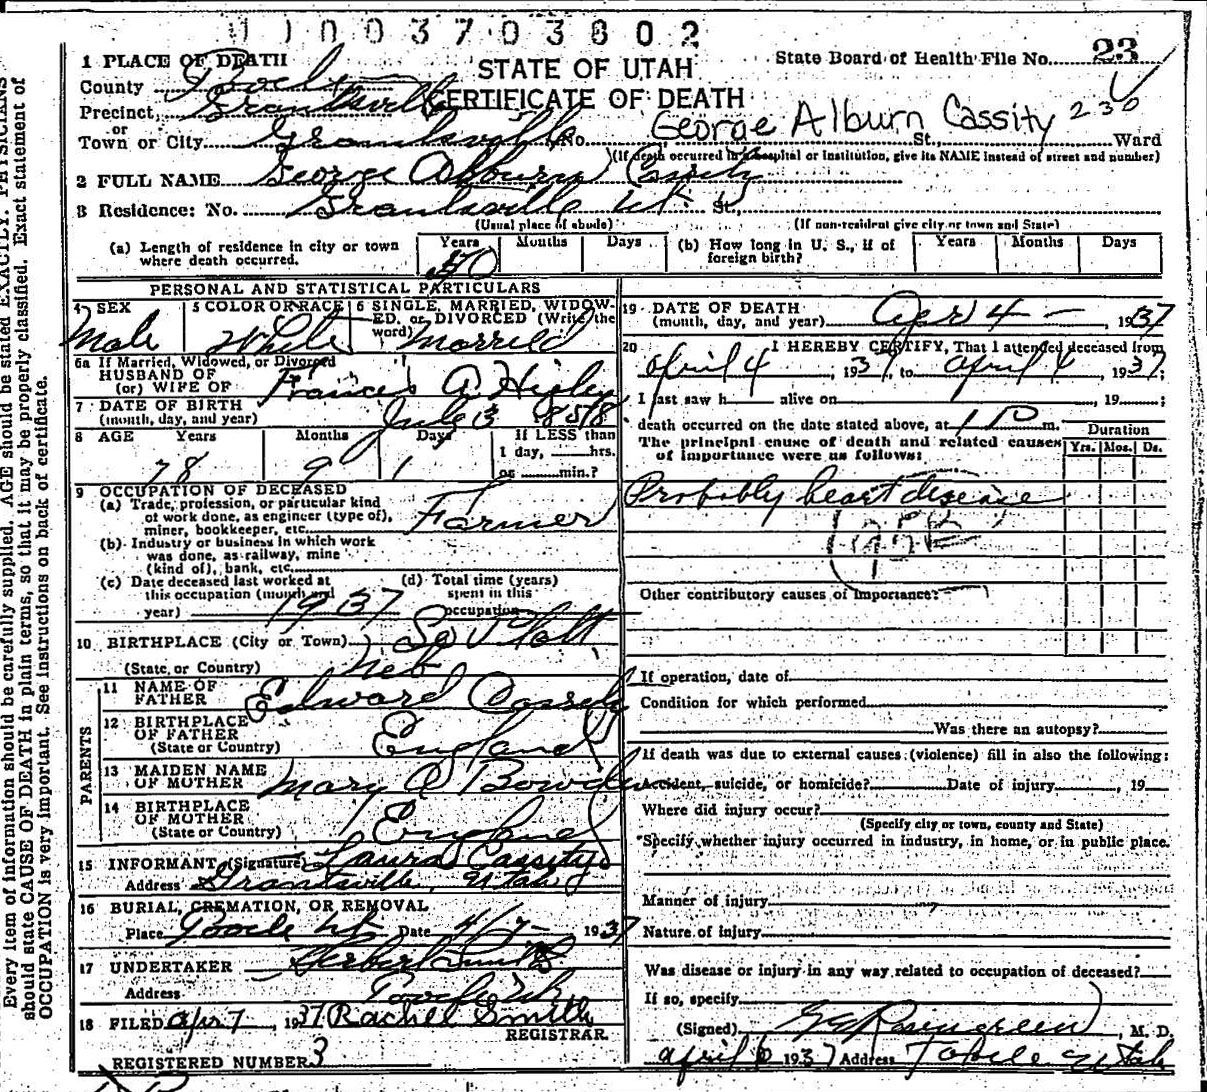 1 1 0 0 3 7 0 3 8 0 2
State Board of Health File No. 23
1 PLACE OF DEATH
STATE OF UTAH
CERTIFICATE OF DEATH
County Tooele
Precinct, Grantsville
or
Town or City Grantsville No. St., Ward
George Alburn Cassity 230
(If death occurred in a hospital or institution, give its NAME instead of street and number)
2 FULL NAME George Alburn Cassity
3 Residence: No. Grantsville Ut. St.,
(Usual place of abode) (If non-resident give city or town and State)
(a) Length of residence in city or town where death occurred. Years Months Days
(b) How long in U. S., if of foreign birth? Years Months Days
PERSONAL AND STATISTICAL PARTICULARS
4 SEX Male
5 COLOR OR RACE White
6 SINGLE, MARRIED, WIDOWED. or DIVORCED (Write the word) Married
6a If Married, Widowed, or Divorced
HUSBAND OF
(or) WIFE OF Frances A. Higley
7 DATE OF BIRTH
(month, day, and year) July 3 1858
8 AGE Years Months Days If LESS than
78 9 1 1 day, hrs.
or min.?
9 OCCUPATION OF DECEASED
(a) Trade, profession, or particular kind
of work done, as engineer (type of),
miner, bookkeeper, etc. Farmer
(b) Industry or business in which work
was done, as railway, mine
(kind of), bank, etc.
(c) Date deceased last worked at
this occupation (month and
year) 1937
(d) Total time (years)
spent in this
occupation
10 BIRTHPLACE (City or Town) So Platt
(State or Country) Neb
PARENTS
11 NAME OF
FATHER Edward
12 BIRTHPLACE
OF FATHER
(State or Country) England
13 MAIDEN NAME
OF MOTHER Mary A Bowden
14 BIRTHPLACE
OF MOTHER
(State or Country) England
15 INFORMANT (Signature) Laura Cassity
Address Grantsville, Utah
16 BURIAL, CREMATION, OR REMOVAL
Place Tooele Ut Date 4/7 1937
17 UNDERTAKER Herbert Smith
Address Tooele Ut
18 FILED Apr 7, 1937 Rachel Smith
REGISTRAR.
REGISTERED NUMBER 3
19 DATE OF DEATH
(month, day, and year) Apr 4 —, 1937
20 I HEREBY CERTIFY, That I attended deceased from
April 4, 1937, to April 4, 1937;
I last saw h alive on , 19 ;
death occurred on the date stated above, at 1 P m.
The principal cause of death and related causes
of importance were as follows:
Duration
Yrs. Mos. Ds.
Probably heart disease
Other contributory causes of importance:
If operation, date of
Condition for which performed
Was there an autopsy?
If death was due to external causes (violence) fill in also the following:
Accident, suicide, or homicide? Date of injury , 19
Where did injury occur?
(Specify city or town, county and State)
Specify whether injury occurred in industry, in home, or in public place.
Manner of injury
Nature of injury
Was disease or injury in any way related to occupation of deceased?
If so, specify
(Signed) , M. D.
April 6 1937 Address Tooele Utah
Every item of information should be carefully supplied. AGE should be stated EXACTLY. PHYSICIANS
should state CAUSE OF DEATH in plain terms, so that it may be properly classified. Exact statement of
OCCUPATION is very important. See instructions on back of certificate.